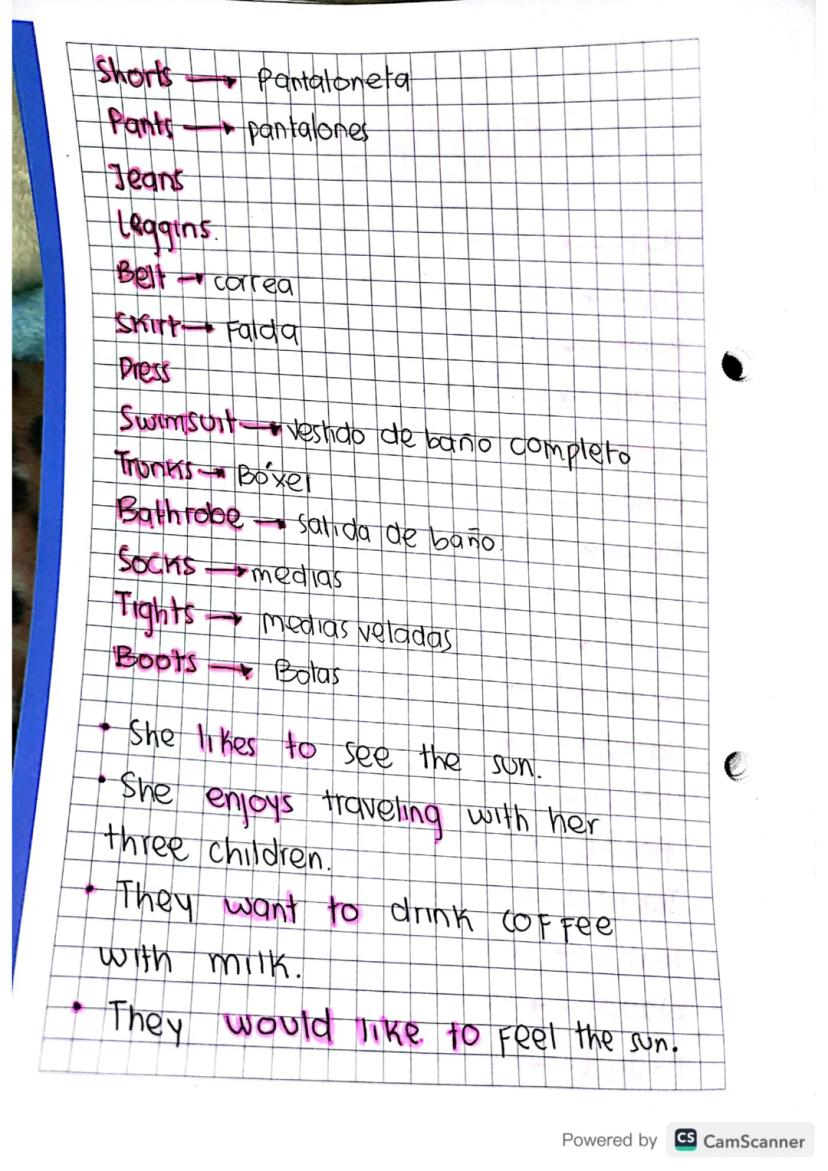 Shorts → Pantaloneta
Pants → pantalones
Jeans
Leggins.
Belt → correa
Skirt → Falda
Dress
Swimsuit → vestido de baño completo
Trunks → Bóxer
Bathrobe → salida de baño
Socks → medias
Tights → medias veladas
Boots → Botas
• She likes to see the sun.
• She enjoys traveling with her
three children.
• They want to drink coffee
with milk.
• They would like to feel the sun.
Powered by CS CamScanner